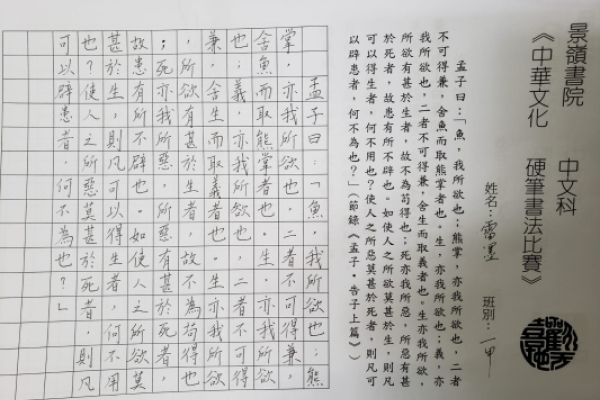 景嶺書院 中文科
《中華文化 硬筆書法比賽》
姓名：雷墨 班別：一甲
孟子曰：「魚，我所欲也；熊掌，亦我所欲也，二者
不可得兼，舍魚而取熊掌者也。生，亦我所欲也；義，亦
我所欲也，二者不可得兼，舍生而取義者也。生亦我所欲，
所欲有甚於生者，故不為苟得也；死亦我所惡，所惡有甚
於死者，故患有所不辟也。如使人之所欲莫甚於生，則凡
可以得生者，何不用也？使人之所惡莫甚於死者，則凡可
以辟患者，何不為也？」（節錄《孟子·告子上篇》）
孟子曰：「魚，我所欲也；熊
掌，亦我所欲也。二者不可得兼，
舍魚，而取熊掌者也。生，亦我所欲
也；義，亦我所欲也，二者不可得
兼，舍生而取義者也。生亦我所欲
，所欲有甚於生者，故不為苟得也
；死亦我所惡，所惡有甚於死者，
故患有所不辟也。如使人之所欲莫
甚於生，則凡可以得生者，何不用
也？使人之所惡莫甚於死者，則凡
可以辟患者，何不為也？」